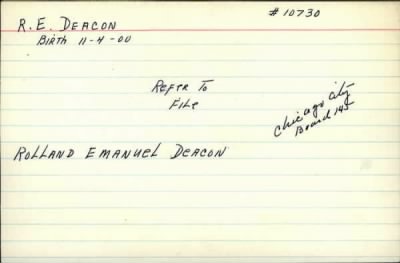 # 10730
R. E. DEACON
Birth 11-4-00
REFER TO
FILE
Chicago City
Board 145
ROLLAND EMANUEL DEACON